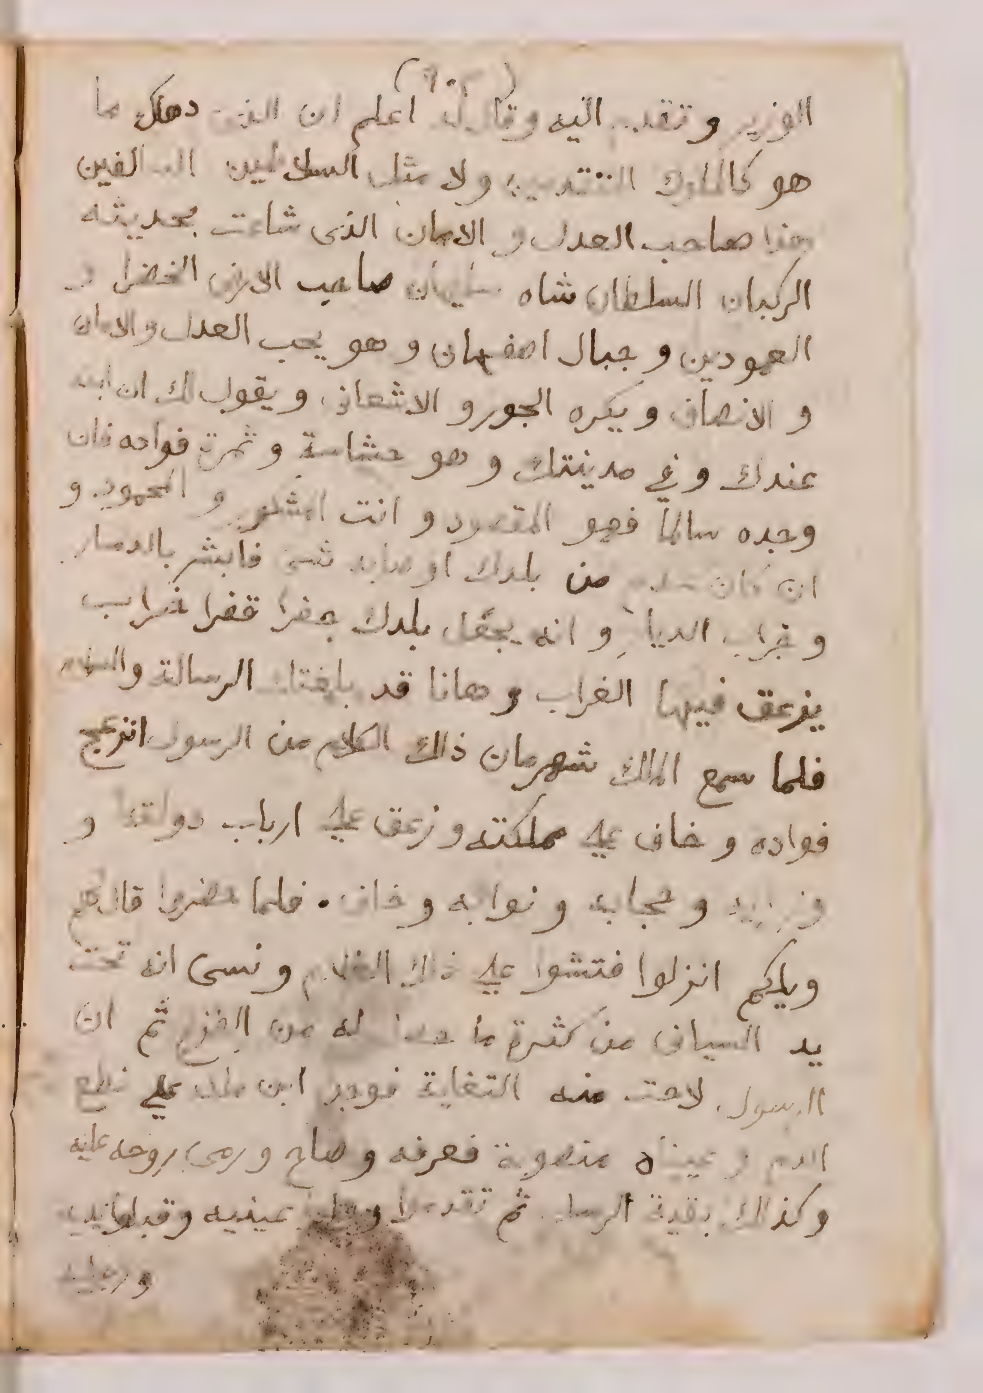 الوزير وتقدم اليه وقال له اعلم ان الذى دهاك ما
هو كالملوك المتقدمين ولا مثل السلاطين السالفين
هذا صاحب العدل و الامان الذى شاعت بحديثه
الركبان السلطان شاه سليمان صاحب الارض الخضرا و
العمودين و جبال اصفهان و هو يحب العدل والامان
و الانصاف و يكره الجور و الاشعاف و يقول لك ان ابنه
عندك و في مدينتك و هو حشاسة و ثمرة فواده فان
وجده سالماً فهو المقصود و انت المشكور و المحمود و
ان كان عدم من بلدك او صابه شى فابشر بالدمار
و خراب الديار و انه يجعل بلدك جفرا قفرا خراب
يزعق فيها الغراب و هانا قد بلغتك الرسالة والسلام
فلما سمع الملك شهرمان ذلك الكلام من الرسول انزعج
فواده و خاف على مملكته و زعق على ارباب دولته و
وزرايه و حجابه و نوابه و خاف . فلما حضروا قال لهم
ويلكم انزلوا فتشوا على ذلك الغلام و نسى انه تحت
يد السياف من كثرة ما حصل له من الفزع ثم ان
الرسول لاحت منه التفاية فوجد ابن ملكه على نطع
الدم و عيناه منصوبة فعرفه و صاح و رمى روحه عليه
وكذلك بقية الرسل ثم تقدموا و عينيه وقبلوا يديه